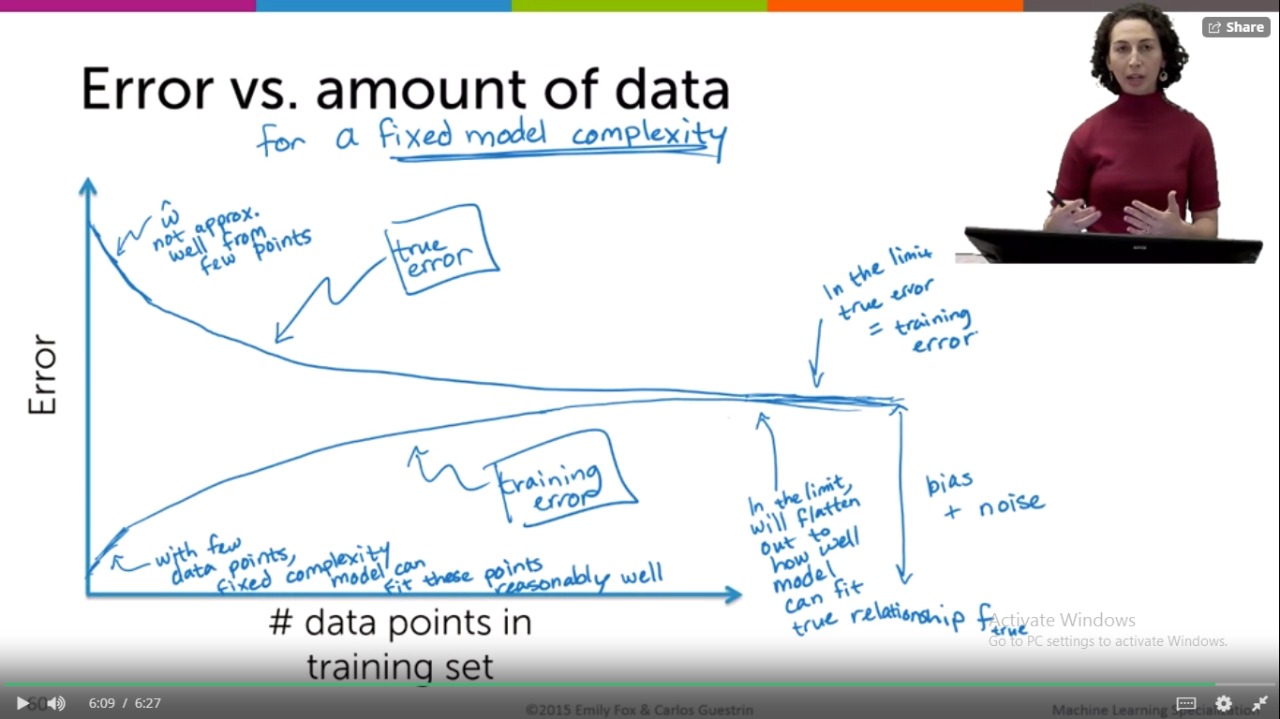 Share
Error vs. amount of data
for a fixed model complexity
ŵ
not approx.
well from
few points
true
error
In the limit
true error
= training
error
Error
training
error
with few
data points,
fixed complexity
model can
fit these points
reasonably well
In the limit,
will flatten
out to
how well
model
can fit
true relationship f_true
bias
+ noise
# data points in
training set
Activate Windows
Go to PC settings to activate Windows.
60
6:09 / 6:27
©2015 Emily Fox & Carlos Guestrin
Machine Learning Specialization